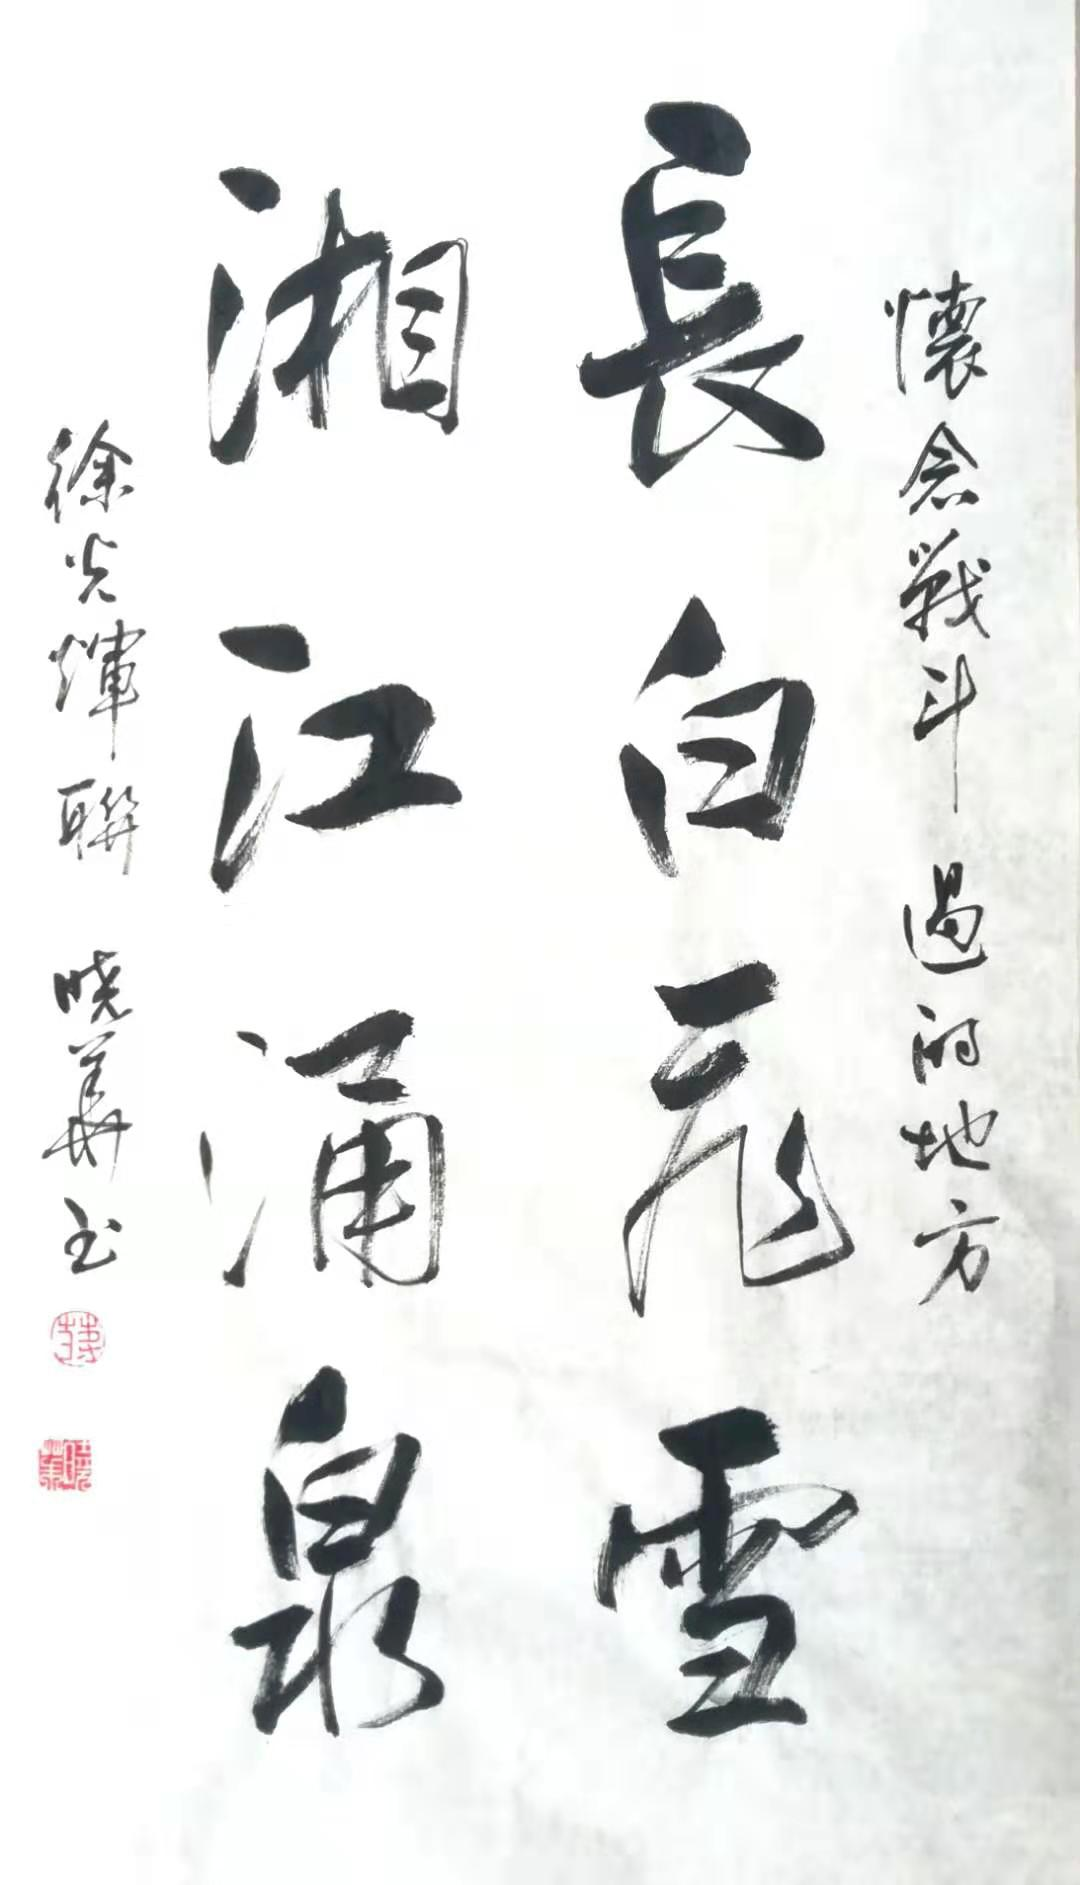 懷念戰斗過的地方
長白飛雪
湘江涌泉
徐光輝聯 曉華书
曉華